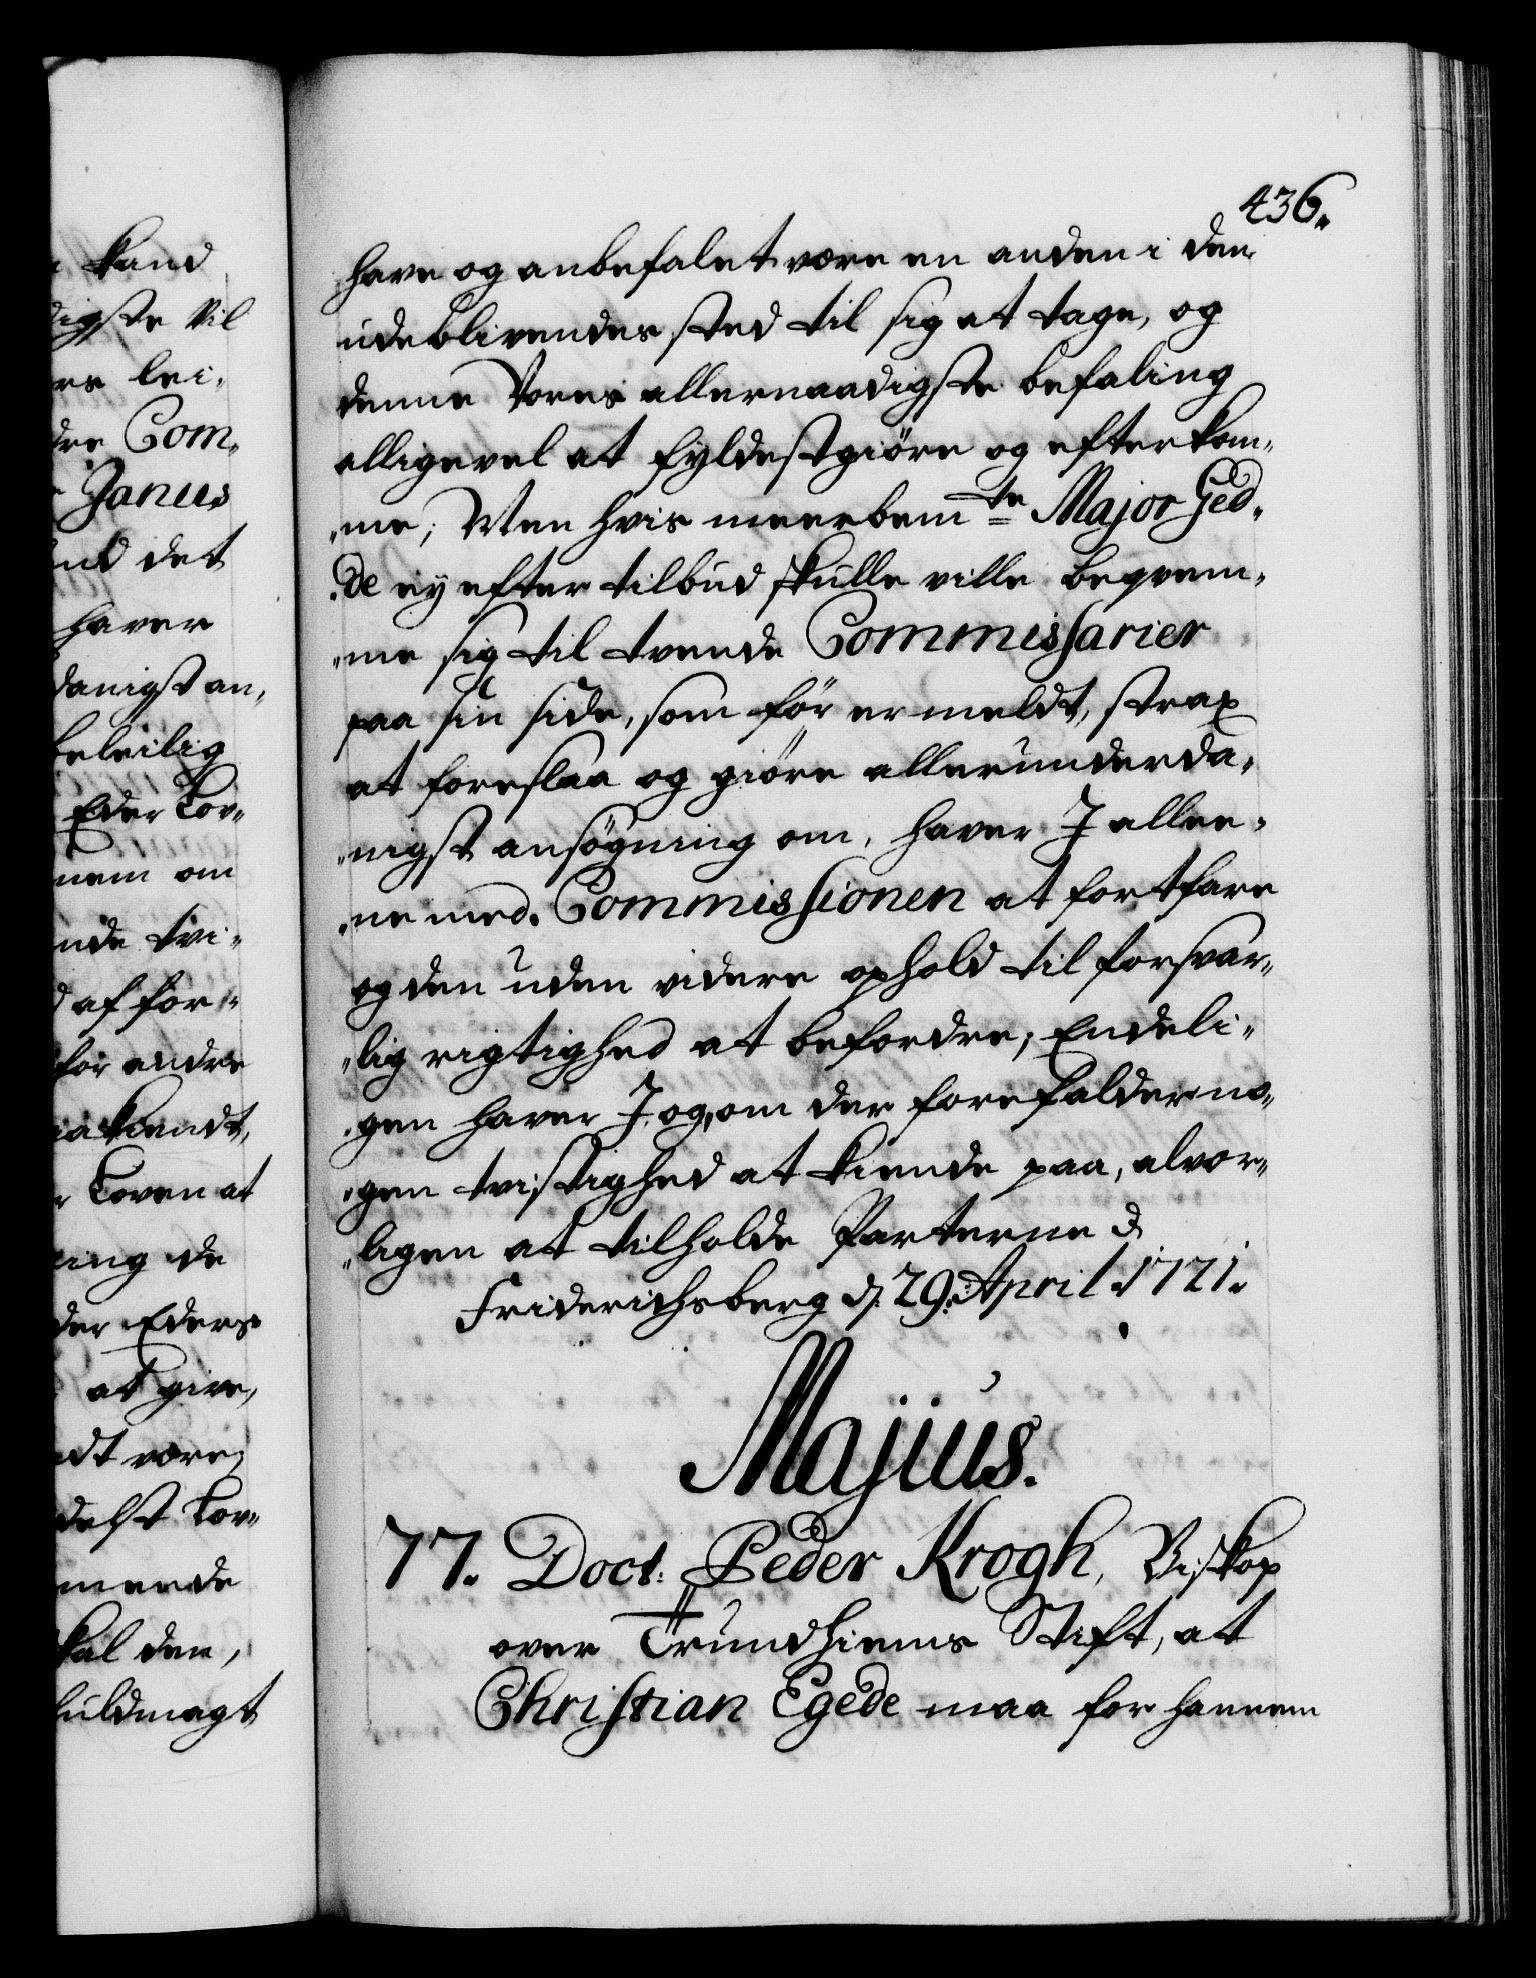 kand
digste Vil
lei-
dre Com-
Janus
det
haver
danigst an-
beleilig
Eder Lov-
nem om
nde tvi-
af for-
for andre
Loven at
ing de
der Eders
at give,
dt være,
delst Lov-
meende
skal den,
fuldmagt
436.
have og anbefalet være en anden i den
udeblivendes sted til sig at tage, og
denne Vores allernaadigste befaling
alligevel at fyldestgiøre og efterkom-
me; Men hvis meerbem.te Major Ged-
de ey efter tilbud skulle ville beqvem-
me sig til tvende Commissarier
paa sin side, som før er meldt, strax
at foreslaa og giøre allerunderda-
nigst ansøgning om, haver I allee-
ne med Commissionen at fortfare
og den uden videre ophold til forsvar-
lig rigtighed at befordre; Endeli-
gen haver I og, om der forefalder no-
gen tvistighed at kiende paa, alvor-
ligen at tilholde Parterne &
Friderichsberg d. 29. April 1721.
Majius.
77. Doct. Peder Krogh, Biskop
over Trundhiems Stift, at
Christian Egede maa for hannem